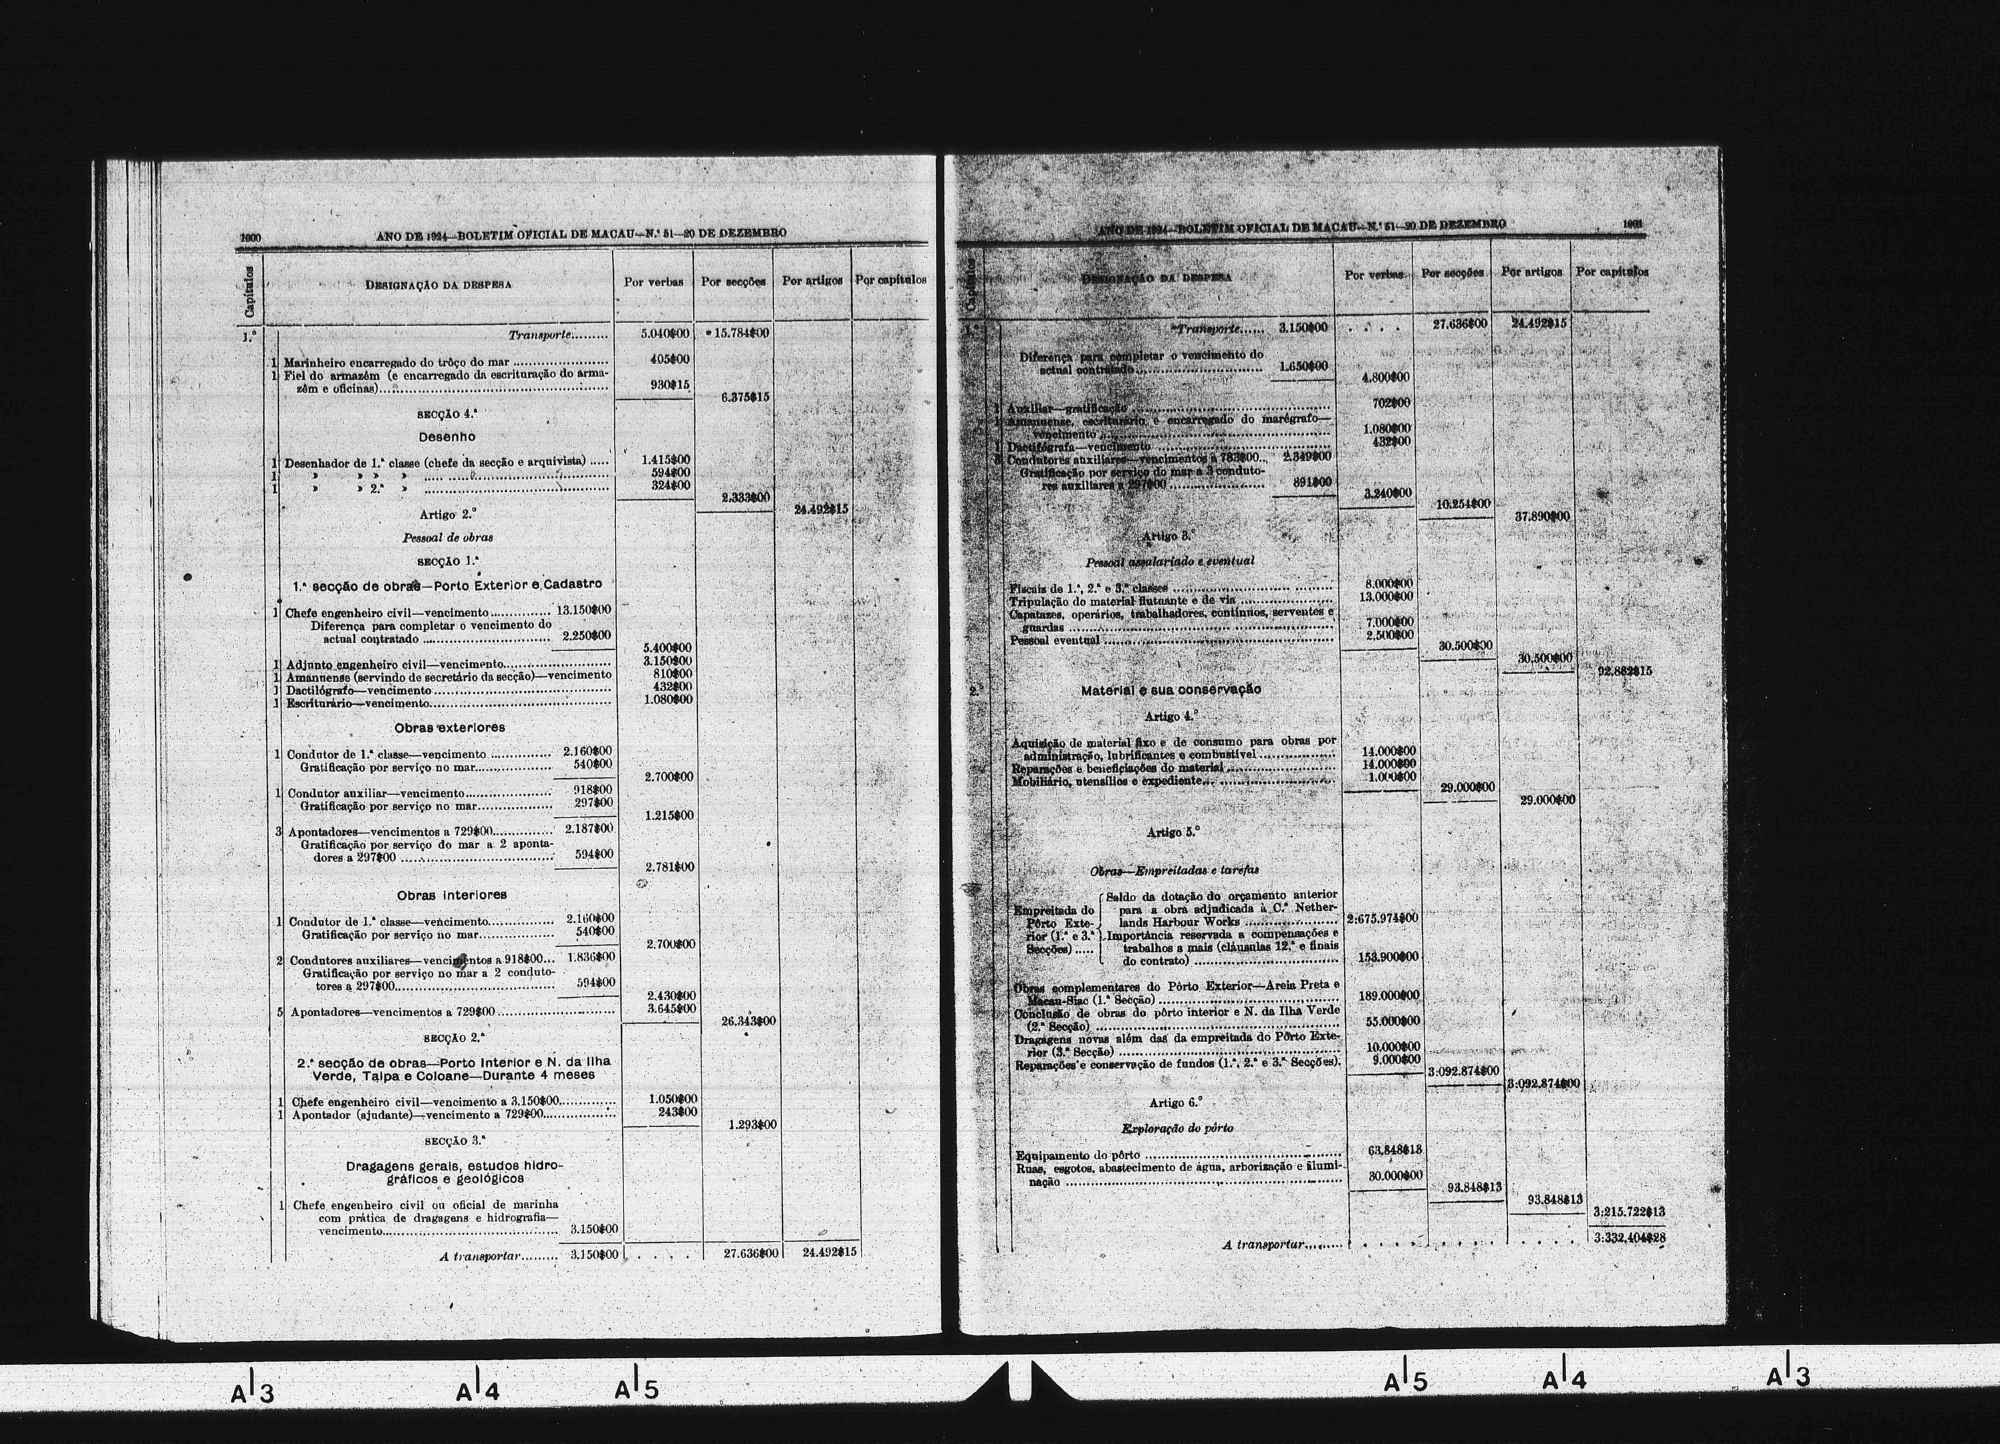 1600
ANO DE 1924—BOLETIM OFICIAL DE MACAU—N.º 51—20 DE DEZEMBRO
Capítulos
DESIGNAÇÃO DA DESPESA
Por verbas
Por secções
Por artigos
Por capítulos
1.º
Transporte......... 5.040$00 15.784$00
1 Marinheiro encarregado do trôço do mar ........................ 405$00
1 Fiel do armazém (e encarregado da escrituração do arma-
zêm e oficinas)........................ 930$15
6.375$15
SECÇÃO 4.ª
Desenho
1 Desenhador de 1.ª classe (chefe da secção e arquivista) ..... 1.415$00
1 » » » » ........................ 594$00
1 » » 2.ª » ........................ 324$00
2.333$00
24.492$15
Artigo 2.º
Pessoal de obras
SECÇÃO 1.ª
1.ª secção de obras—Porto Exterior e Cadastro
1 Chefe engenheiro civil—vencimento ............... 13.150$00
Diferença para completar o vencimento do
actual contratado ........................ 2.250$00
5.400$00
1 Adjunto engenheiro civil—vencimento........................ 3.150$00
1 Amanuense (servindo de secretário da secção)—vencimento 810$00
1 Dactilógrafo—vencimento ........................ 432$00
1 Escriturário—vencimento........................ 1.080$00
Obras exteriores
1 Condutor de 1.ª classe—vencimento ............... 2.160$00
Gratificação por serviço no mar.................. 540$00
2.700$00
1 Condutor auxiliar—vencimento..................... 918$00
Gratificação por serviço no mar.................. 297$00
1.215$00
3 Apontadores—vencimentos a 729$00............... 2.187$00
Gratificação por serviço do mar a 2 aponta-
dores a 297$00 ........................ 594$00
2.781$00
Obras interiores
1 Condutor de 1.ª classe—vencimento................ 2.160$00
Gratificação por serviço no mar.................. 540$00
2.700$00
2 Condutores auxiliares—vencimentos a 918$00... 1.836$00
Gratificação por serviço no mar a 2 conduto-
tores a 297$00........................ 594$00
2.430$00
5 Apontadores—vencimentos a 729$00........................ 3.645$00
26.343$00
SECÇÃO 2.ª
2.ª secção de obras—Porto Interior e N. da Ilha
Verde, Taipa e Coloane—Durante 4 meses
1 Chefe engenheiro civil—vencimento a 3.150$00.............. 1.050$00
1 Apontador (ajudante)—vencimento a 729$00.................. 243$00
1.293$00
SECÇÃO 3.ª
Dragagens gerais, estudos hidro-
gráficos e geológicos
1 Chefe engenheiro civil ou oficial de marinha
com prática de dragagens e hidrografia—
vencimento........................ 3.150$00
A transportar......... 3.150$00 . . . . 27.636$00 24.492$15
ANO DE 1924—BOLETIM OFICIAL DE MACAU—N.º 51—20 DE DEZEMBRO
1601
Capítulos
DESIGNAÇÃO DA DESPESA
Por verbas
Por secções
Por artigos
Por capítulos
1.º
Transporte...... 3.150$00 . . . . 27.636$00 24.492$15
Diferença para completar o vencimento do
actual contratado........................ 1.650$00
4.800$00
1 Auxiliar—gratificação ........................ 702$00
1 Amanuense, escriturário e encarregado do marégrafo—
vencimento ........................ 1.080$00
1 Dactilógrafa—vencimento ........................ 432$00
3 Condutores auxiliares—vencimentos a 783$00.. 2.349$00
Gratificação por serviço do mar a 3 conduto-
res auxiliares a 297$00 ........................ 891$00
3.240$00
10.254$00
37.890$00
Artigo 3.º
Pessoal assalariado e eventual
Fiscais de 1.ª, 2.ª e 3.ª classes ........................ 8.000$00
Tripulação do material flutuante e de via ........................ 13.000$00
Capatazes, operários, trabalhadores, contínuos, serventes e
guardas ........................ 7.000$00
Pessoal eventual ........................ 2.500$00
30.500$00
30.500$00
92.882$15
2.º
Material e sua conservação
Artigo 4.º
Aquisição de material fixo e de consumo para obras por
administração, lubrificantes e combustível .................. 14.000$00
Reparações e beneficiações do material ........................ 14.000$00
Mobiliário, utensílios e expediente........................ 1.000$00
29.000$00
29.000$00
Artigo 5.º
Obras—Empreitadas e tarefas
Empreitada do Pôrto Exterior (1.ª e 3.ª Secções) .....
Saldo da dotação do orçamento anterior
para a obra adjudicada à C.ª Nether-
lands Harbour Works .................. 2:675.974$00
Importância reservada a compensações e
trabalhos a mais (cláusulas 12.ª e finais
do contrato) ........................ 153.900$00
Obras complementares do Pôrto Exterior—Areia Preta e
Macau-Siac (1.ª Secção) ........................ 189.000$00
Conclusão de obras do pôrto interior e N. da Ilha Verde
(2.ª Secção) ........................ 55.000$00
Dragagens novas além das da empreitada do Pôrto Exte-
rior (3.ª Secção) ........................ 10.000$00
Reparações e conservação de fundos (1.ª, 2.ª e 3.ª Secções). 9.000$00
3:092.874$00
3:092.874$00
Artigo 6.º
Exploração do pôrto
Equipamento do pôrto ........................ 63.848$13
Ruas, esgotos, abastecimento de água, arborização e ilumi-
nação ........................ 30.000$00
93.848$13
93.848$13
3:215.722$13
A transportar......... . . . . 3:332.404$28
A3 A4 A5 A5 A4 A3